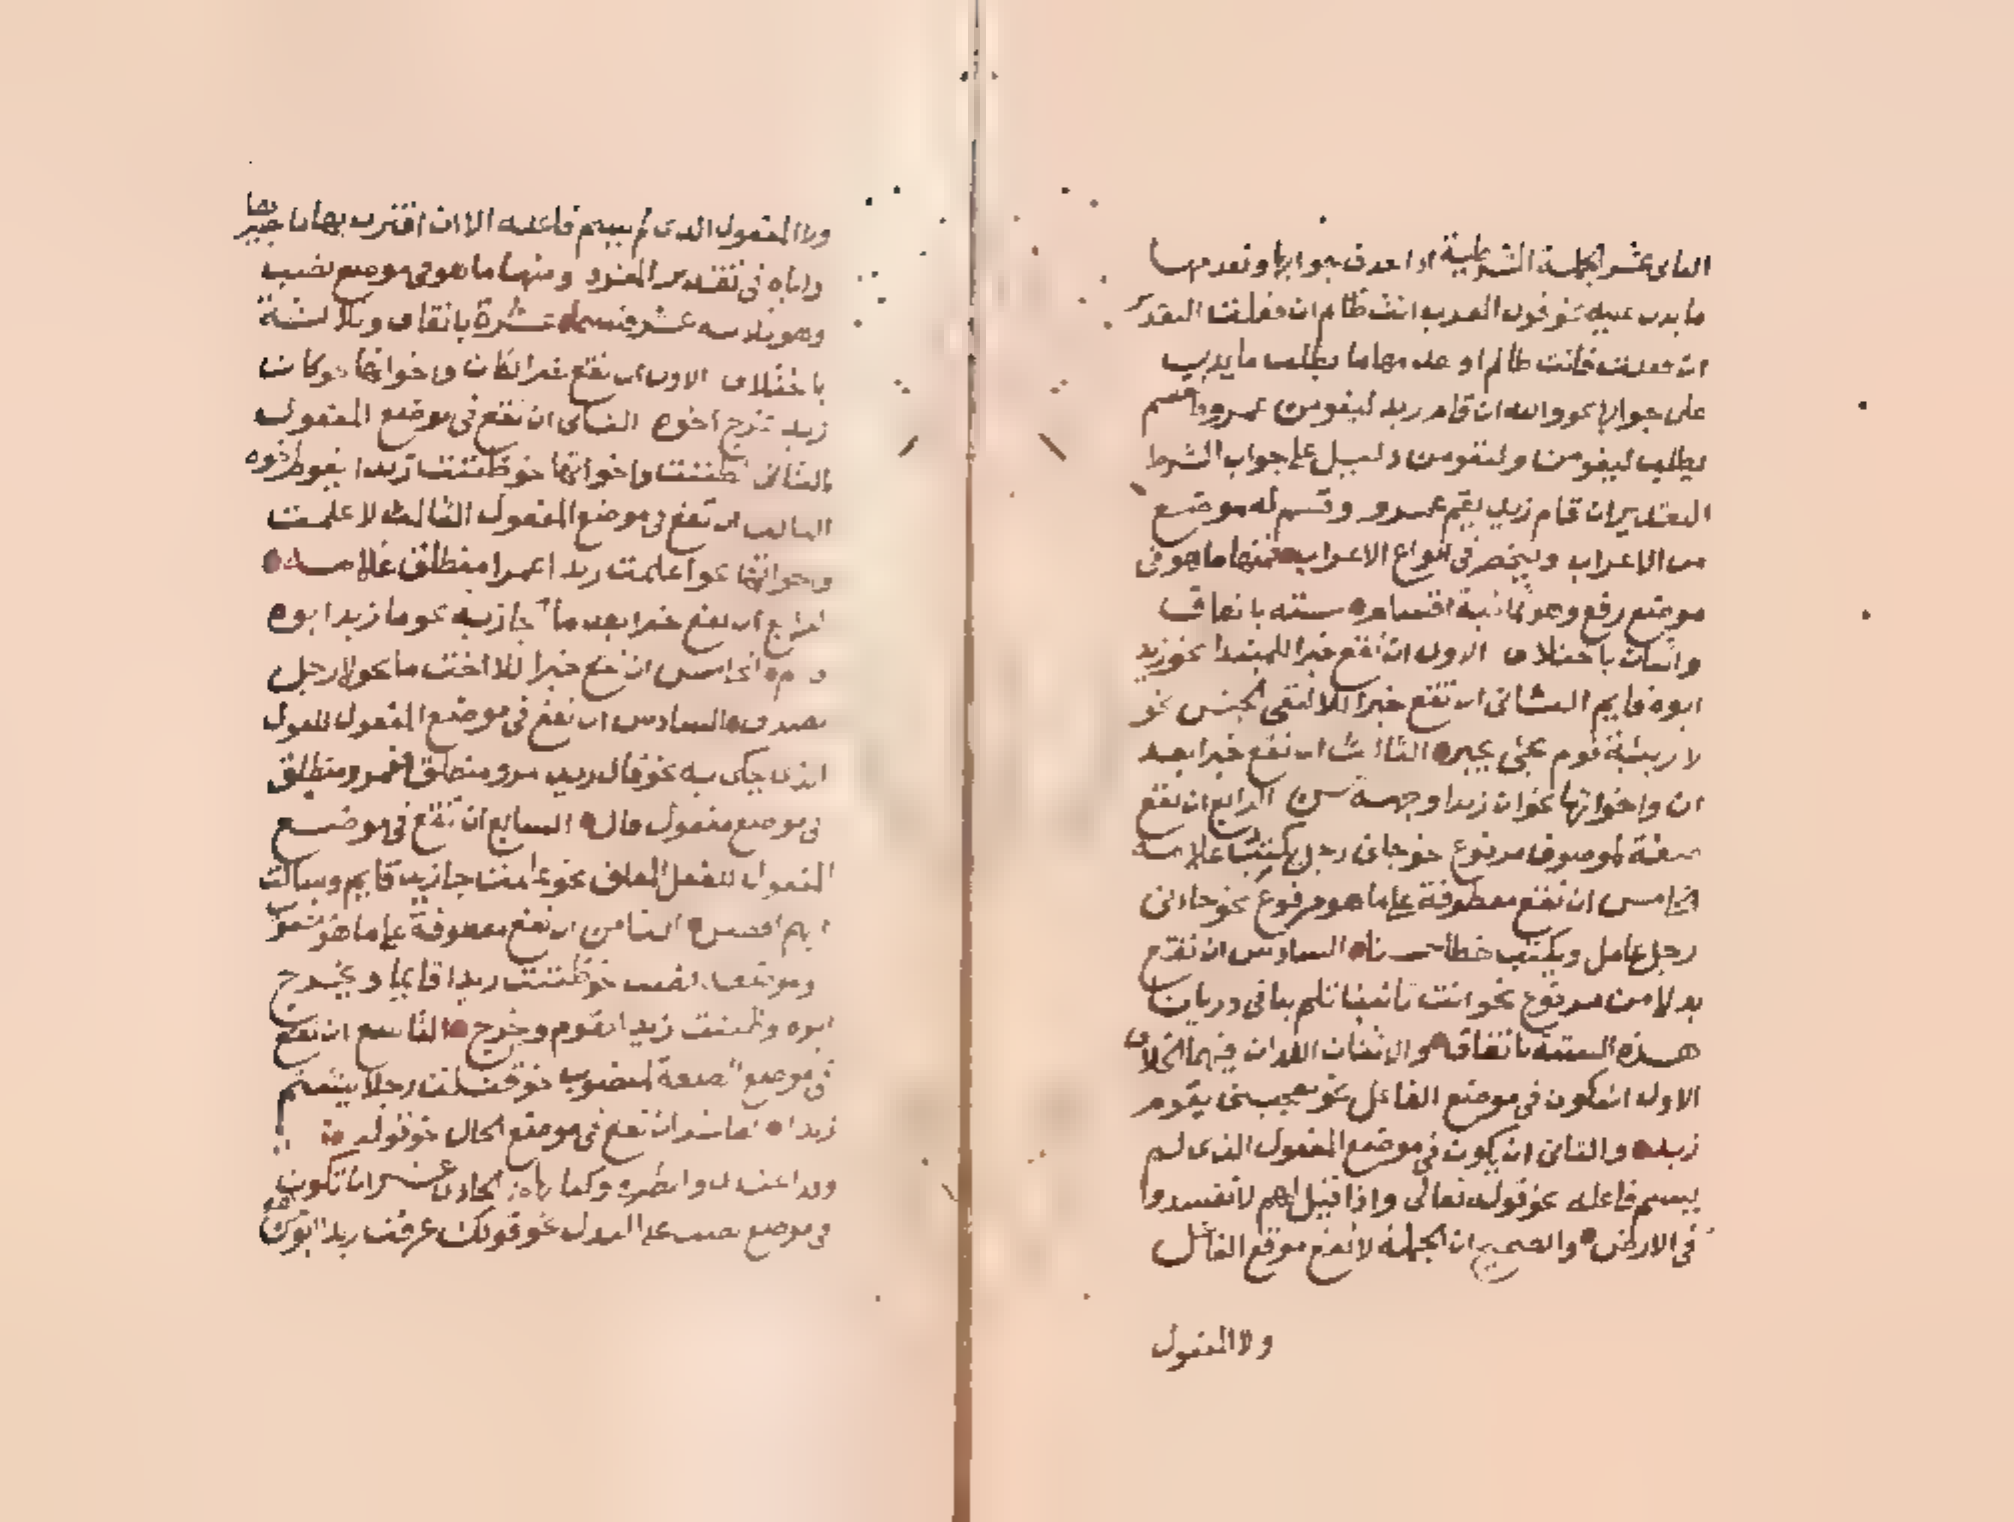 الثاني عشر الجملة الشرطية اذا حذف جوابها وتقدمها
ما يدل عليه نحو قول العرب انت ظالم ان فعلت التقدير
ان فعلت فانت ظالم او عدمهاما يطلب ما يدل
على جوابها نحو والله ان قام زيد ليقومن عمرو فالقسم
يطلب ليقومن وليقومن دليل على جواب الشرط
التقدير ان قام زيد يقم عمرو وقسم له موضع
من الاعراب وينحصر في انواع الاعراب فمنها ما هو في
موضع رفع وهو ثمانية اقسام ستة باتفاق
واثنان باختلاف الاول ان تقع خبرا للمبتدا نحو زيد
ابوه قايم الثاني ان تقع خبرا للا لنفي الجنس نحو
لا ربيئة قوم يجئ بخير الثالث ان تقع خبرا بعد
ان واخواتها نحو ان زيدا وجهه حسن الرابع ان تقع
صفة لموصوف مرفوع نحو جاني رجل يكتب غلامه
الخامس ان تقع معطوفة على ما هو مرفوع نحو جاءني
رجل عامل ويكتب خطا حسنا السادس ان تقع
بدلا من مرفوع نحو انت تاتينا تلم بنا في ديارنا
هذه الستة باتفاق والاثنان اللذان فيهما الخلاف
الاول ان تكون في موضع الفاعل نحو يعجبني يقوم
زيد والثاني ان يكون في موضع المفعول الذي لم
يسم فاعله نحو قوله تعالى واذا قيل لهم لا تفسدوا
في الارض والصحيح ان الجملة لا تقع موقع الفاعل
ولا المفعول
ولا المفعول الذي لم يسم فاعله الا ان اقترن بها ما يصيرها
واياه في تقدير المفرد ومنها ما هو في موضع نصب
وهو ثلاثة عشر قسما عشرة باتفاق وثلاثة
باختلاف الاول ان تقع خبرا لكان واخواتها نحو كان
زيد يخرج اخوه الثاني ان تقع في موضع المفعول
الثاني لظننت واخواتها نحو ظننت زيدا يقوم اخوه
الثالث ان تقع في موضع المفعول الثالث لاعلمت
واخواتها نحو اعلمت زيدا عمرا منطلق غلامه
الرابع ان تقع خبرا بعد ما الحجازية نحو ما زيد ابوه
قايم الخامس ان تقع خبرا للا اخت ما نحو لا رجل
يصدق السادس ان تقع في موضع المفعول للقول
الذي يحكى به نحو قال زيد عمرو منطلق فعمرو منطلق
في موضع مفعول قال السابع ان تقع في موضع
المفعول للفعل المعلق نحو علمت ما زيد قايم وسالت
ايهم افضل الثامن ان تقع معطوفة على ما هو منصوب
وموضعه نصب نحو ظننت زيدا قايما ويخرج
ابوه وظننت زيدا يقوم ويخرج التاسع ان تقع
في موضع الصفة لمنصوب نحو قتلت رجلا يشتم
زيدا العاشر ان تقع في موضع الحال نحو قوله
وقد اغتدي والطير في وكناتها الحادي عشر ان تكون
في موضع نصب على البدل نحو قولك عرفت زيدا ابو من هو